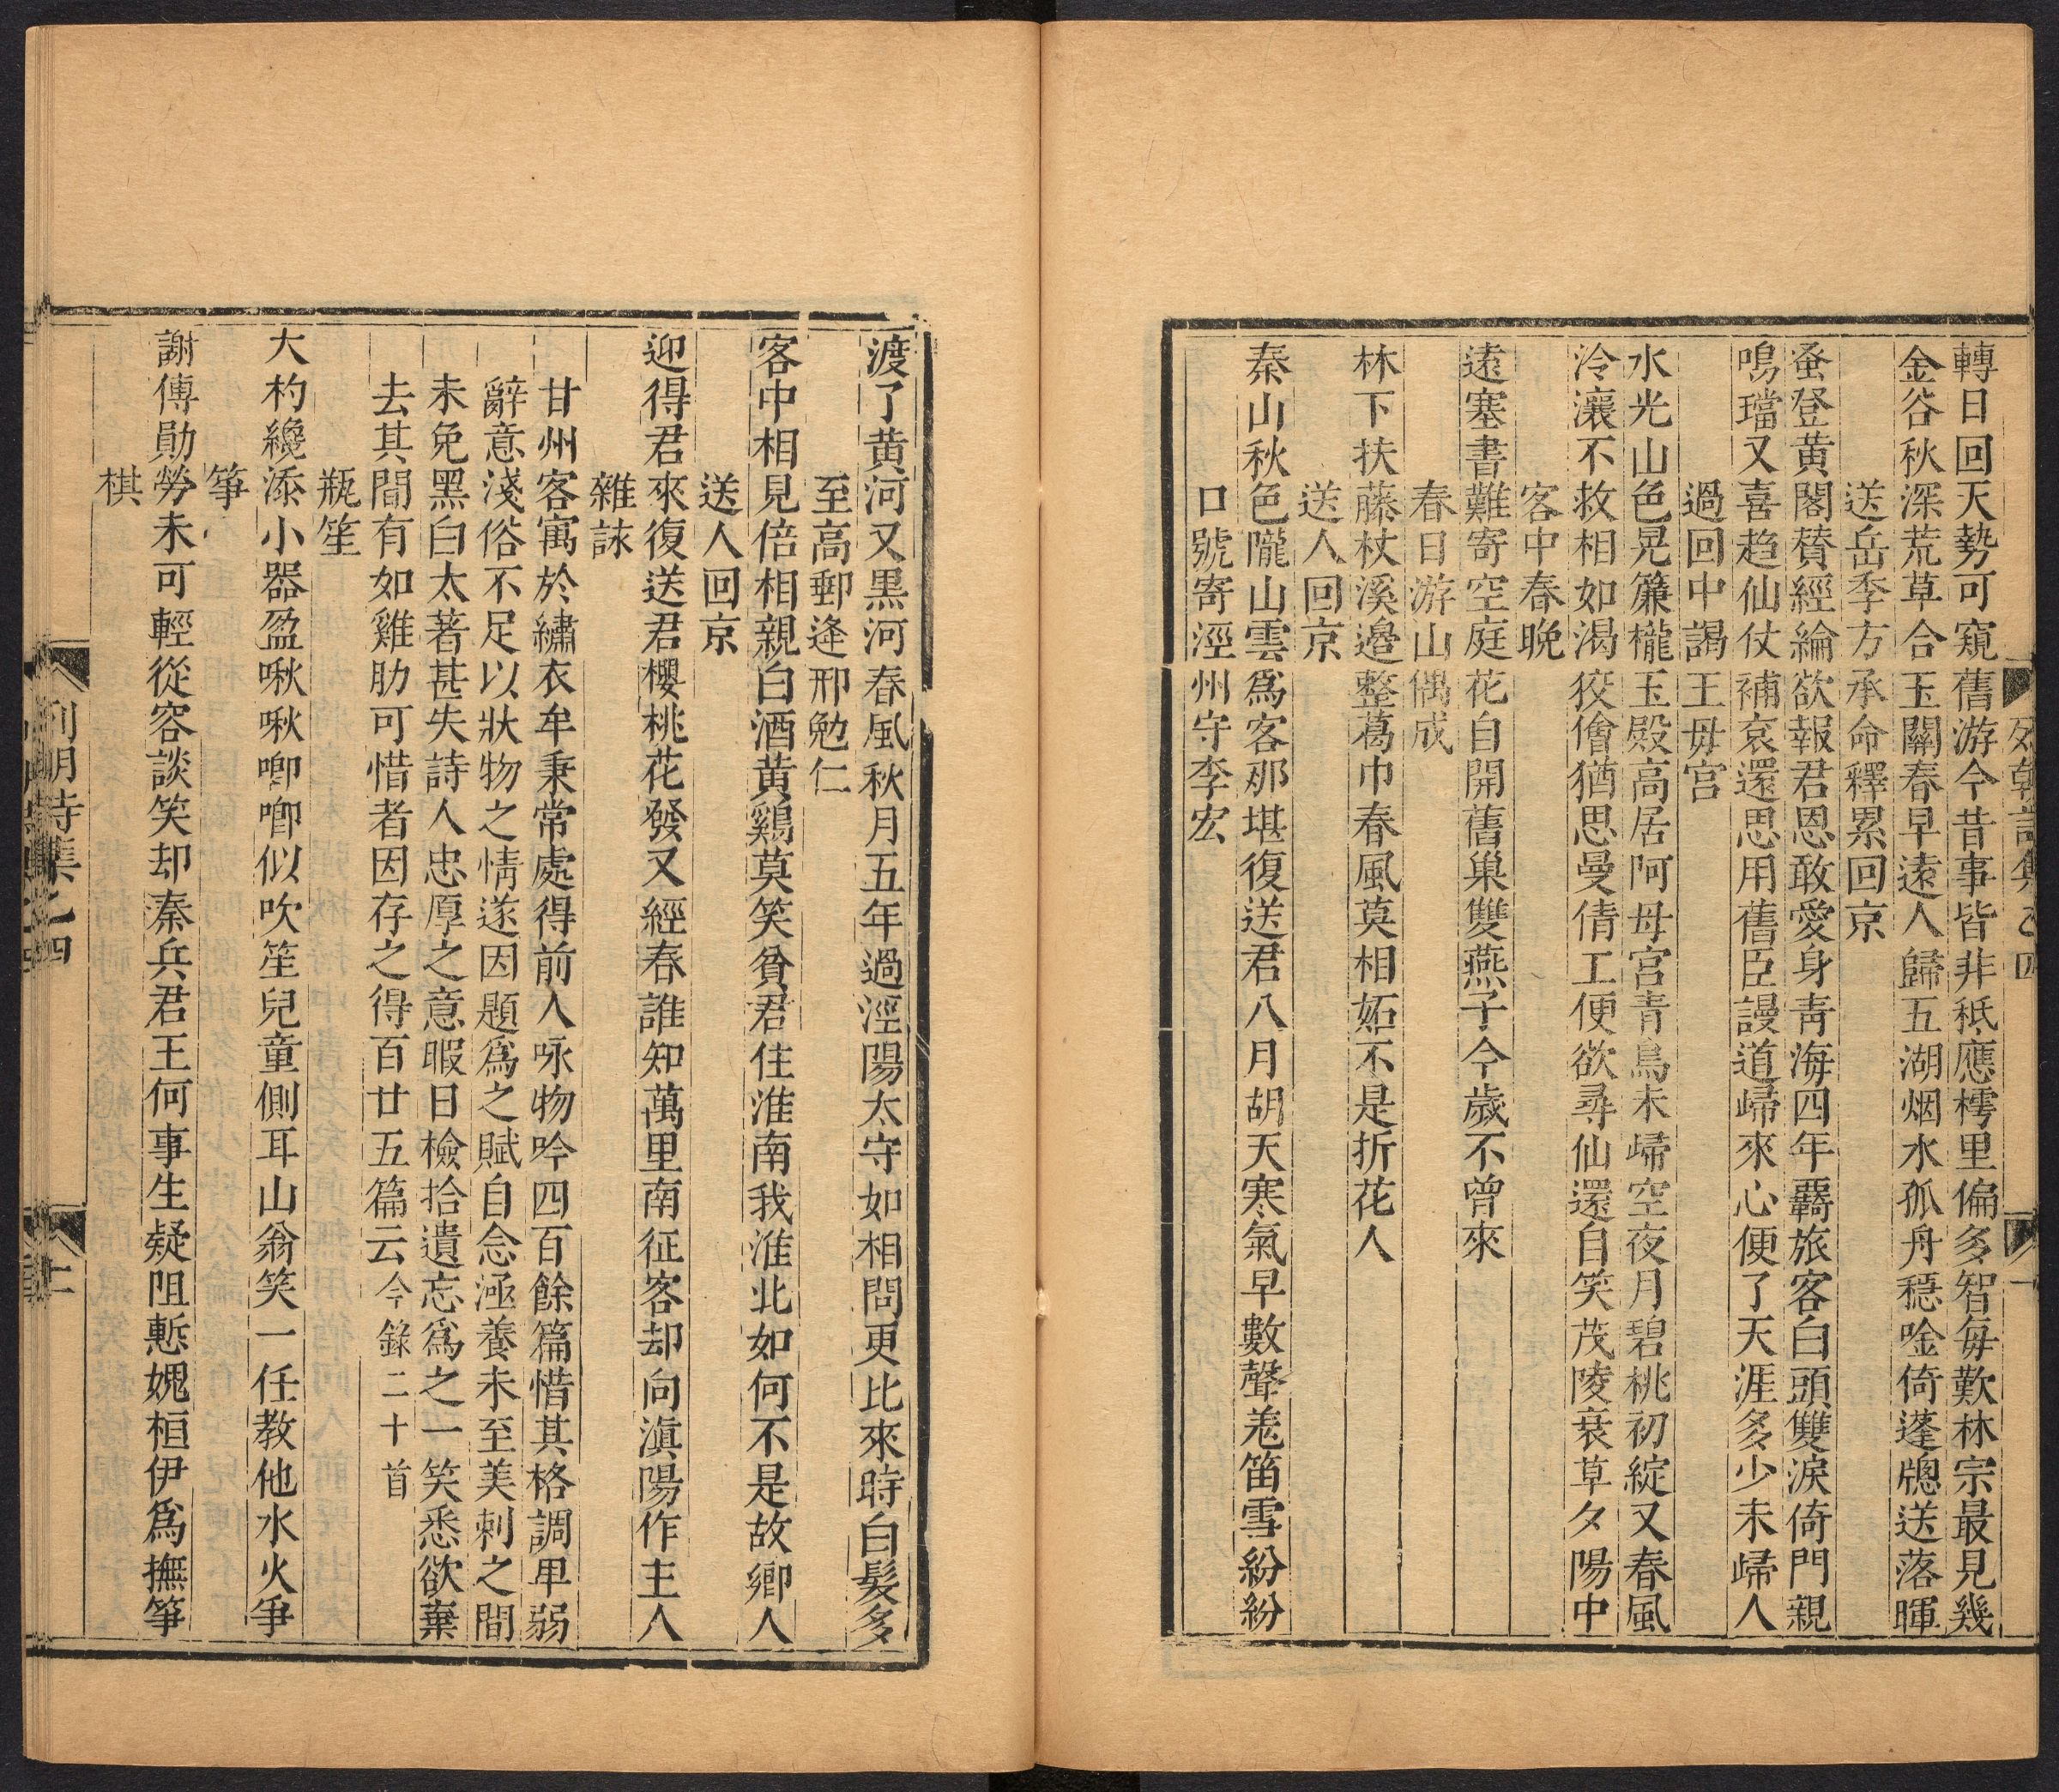 列朝詩集乙四
轉日回天勢可窺舊游今昔事皆非秪應樗里偏多智每歎林宗最見幾
金谷秋深荒草合玉關春早遠人歸五湖烟水孤舟穩唫倚蓬牕送落暉
送岳季方承命釋累回京
蚤登黃閣賛經綸欲報君恩敢愛身青海四年羈旅客白頭雙淚倚門親
鳴璫又喜趋仙仗補衮還思用舊臣謾道歸來心便了天涯多少未歸人
過回中謁王母宮
水光山色晃簾櫳玉殿高居阿母宮青鳥未歸空夜月碧桃初綻又春風
泠瀼不救相如渴狡儈猶思曼倩工便欲尋仙還自笑茂陵衰草夕陽中
客中春晚
遠塞書難寄空庭花自開舊巢雙燕子今歲不曾來
春日游山偶成
林下扶藤杖溪邊整葛巾春風莫相妬不是折花人
送人回京
秦山秋色隴山雲爲客那堪復送君八月胡天寒氣早數聲羗笛雪紛紛
口號寄涇州守李宏
渡了黄河又黒河春風秋月五年過涇陽太守如相問更比來時白髮多
至高郵逢邢勉仁
客中相見倍相親白酒黄鷄莫笑貧君住淮南我淮北如何不是故鄉人
送人回京
迎得君來復送君櫻桃花發又經春誰知萬里南征客却向滇陽作主人
雜詠
甘州客寓於繡衣牟秉常處得前人咏物吟四百餘篇惜其格調卑弱
辭意淺俗不足以狀物之情遂因題爲之賦自念涵養未至美刺之間
未免黑白太著甚失詩人忠厚之意暇日檢拾遺忘爲之一笑悉欲棄
去其間有如雞肋可惜者因存之得百廿五篇云今錄二十首
瓶笙
大杓纔添小器盈啾啾喞喞似吹笙兒童側耳山翁笑一任教他水火爭
箏
謝傅勛勞未可輕從容談笑却秦兵君王何事生疑阻慙媿桓伊爲撫箏
棋
列朝詩集乙四
二